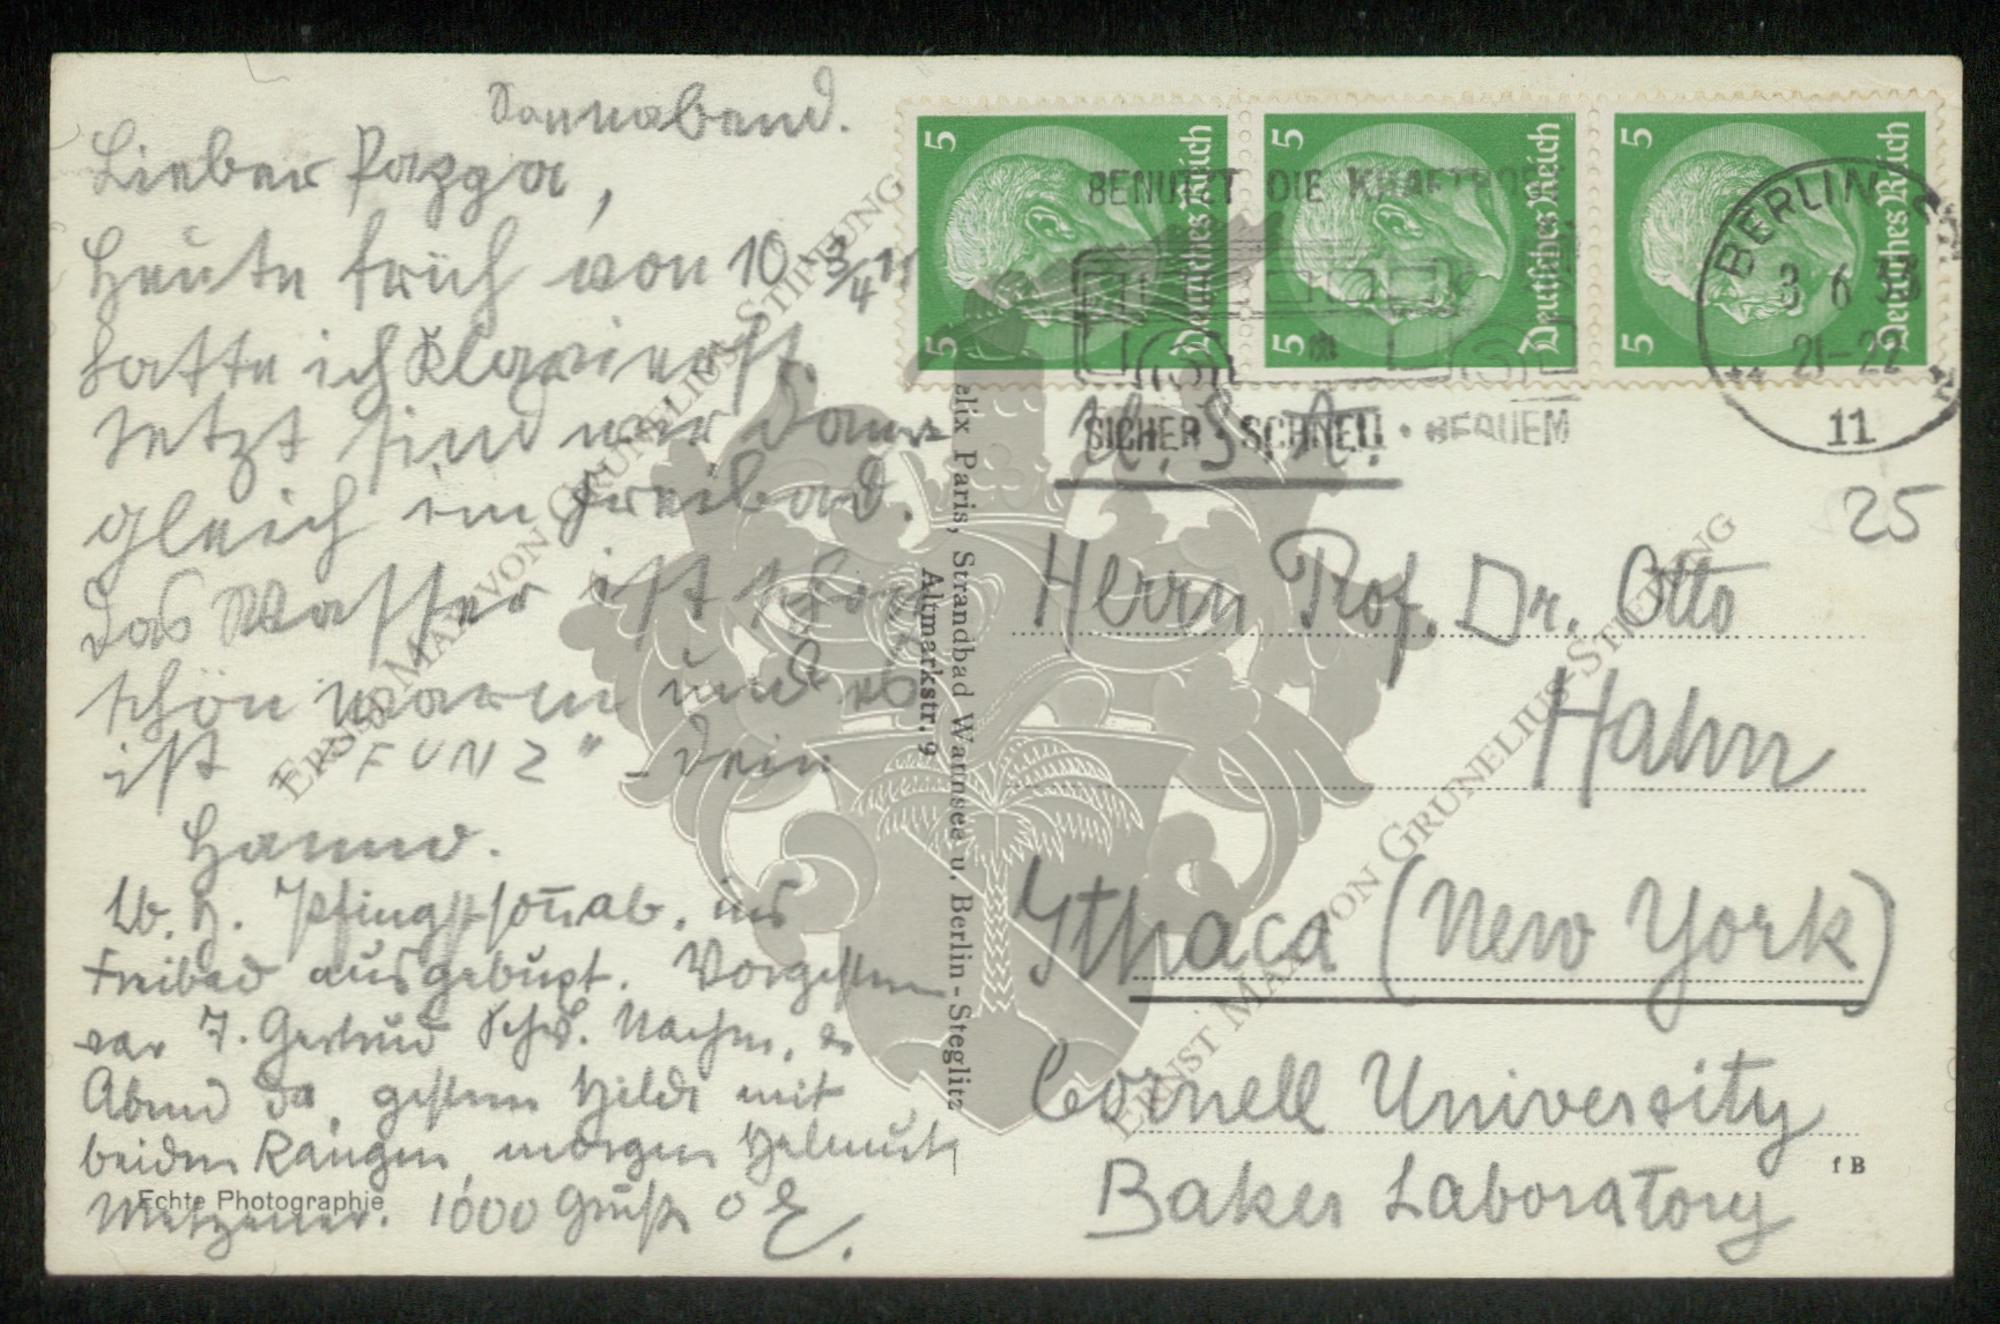 Sonnabend.
Lieber Pappa,
Heute früh von 10 - 3/4 11
hatte ich Klavierst.
Jetzt sind wir dann
gleich im Freibad.
Das Wasser ist schon
schön warm und es
ist "FUNZ" - Dein
Hanno.
Lb. H. Pfingstsonnab. ins
Freibad ausgebüxt. Vorgestern
war T. Gertrud Schw. Nachm. &
Abend da, gestern Hilde mit
beiden Rangen, morgen Helmuth
Metzener. 1000 Grüße E.
Echte Photographie
elix Paris, Strandbad Wannsee u. Berlin-Steglitz
Altmarkstr. 9
5 Deutsches Reich 5
5 Deutsches Reich 5
5 Deutsches Reich 5
BENUTZT DIE KRAFTPOST
SICHER · SCHNELL · BEQUEM
BERLIN
3 6 33
21-22
11
U.S.A.
25
Herrn Prof. Dr. Otto
Hahn
Ythaca (New York)
Cornell University
Baker Laboratory
f B
ERNST MAX VON GRUNELIUS-STIFTUNG
ERNST MAX VON GRUNELIUS-STIFTUNG